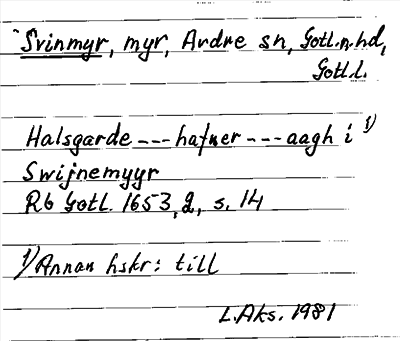 Svinmyr, myr, Ardre sn, Gotl.n.hd,
Gotl.l.
Halsgarde --- hafuer --- aagh i 1)
Swijnemyyr
Rb Gotl. 1653, 2, s. 14
1) Annan hskr: till
L.Aks. 1981